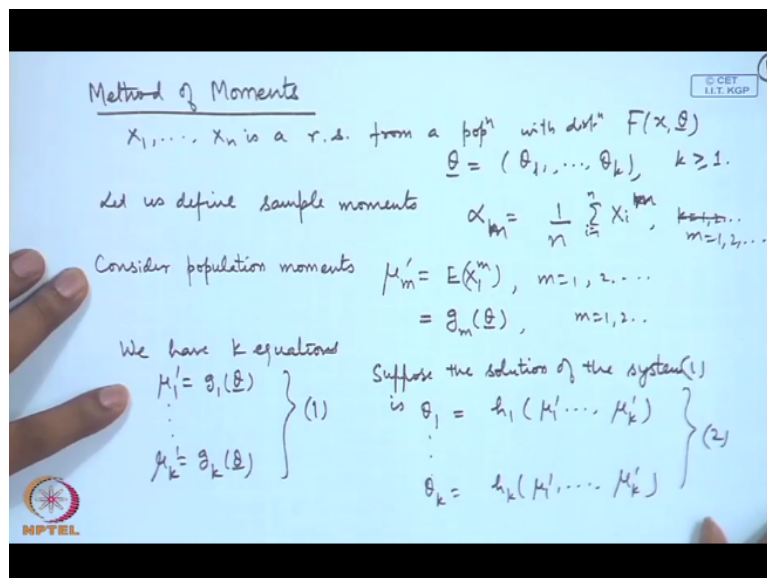 Method of Moments
© CET
I.I.T. KGP
X₁, .... Xₙ is a r.s. from a popⁿ with distⁿ F(x, θ)
θ = (θ₁, ..., θₖ), k ≥ 1.
Let us define sample moments αₘ = 1/n Σᵢ₌₁ⁿ Xᵢᵐ, k=1,2...
m=1,2,...
Consider population moments μ'ₘ = E(X₁ᵐ), m=1, 2....
= gₘ(θ), m=1,2..
We have k equations
μ₁' = g₁(θ)
⋮
μₖ' = gₖ(θ)
} (1)
Suppose the solution of the system (1)
is θ₁ = h₁(μ₁' ..., μₖ')
⋮
θₖ = hₖ(μ₁', ...., μₖ')
} (2)
NPTEL